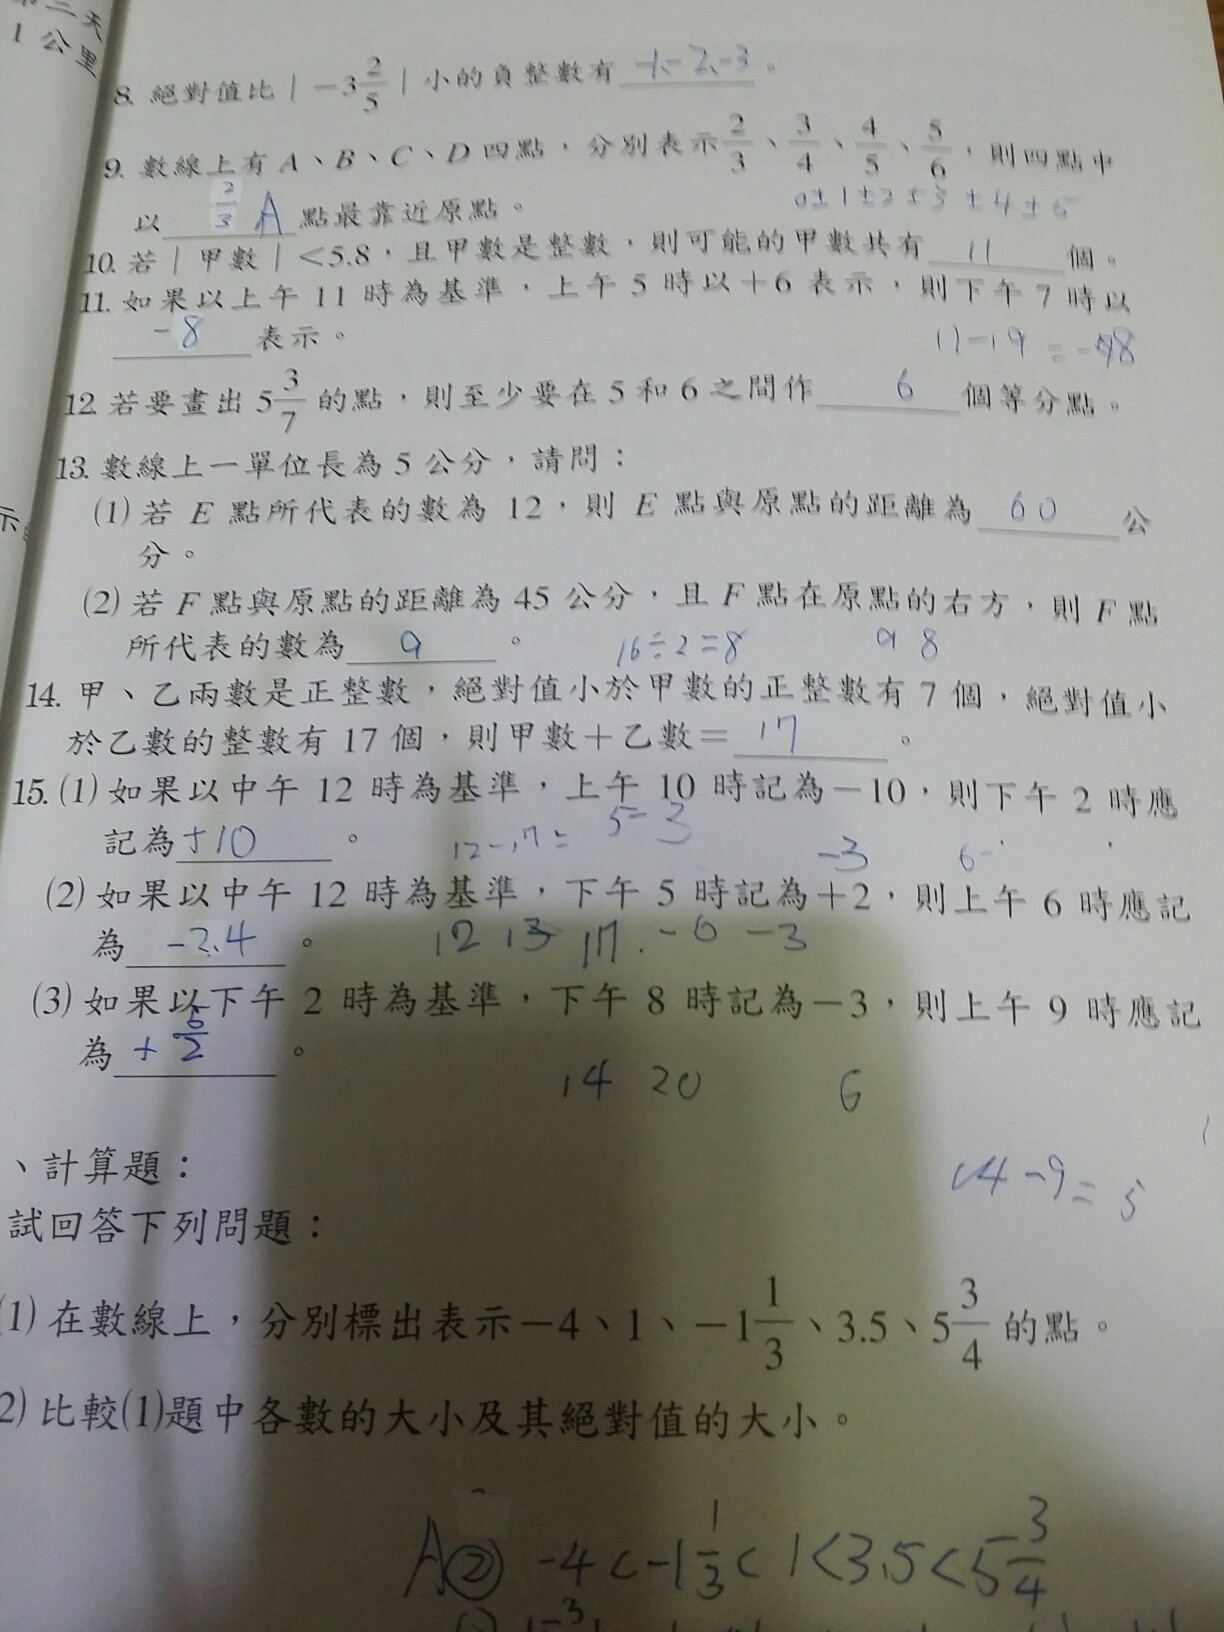 1 公里
8. 絕對值比 | −3 2/5 | 小的負整數有 -1、-2、-3 。
9. 數線上有 A、B、C、D 四點，分別表示 2/3、3/4、4/5、5/6，則四點中
以 2/3 A 點最靠近原點。
0 ±1 ±2 ±3 ±4 ±5
10. 若 | 甲數 | <5.8，且甲數是整數，則可能的甲數共有 11 個。
11. 如果以上午 11 時為基準，上午 5 時以＋6 表示，則下午 7 時以
-8 表示。
11-19 = -8
12. 若要畫出 5 3/7 的點，則至少要在 5 和 6 之間作 6 個等分點。
13. 數線上一單位長為 5 公分，請問：
(1) 若 E 點所代表的數為 12，則 E 點與原點的距離為 60 公
分。
(2) 若 F 點與原點的距離為 45 公分，且 F 點在原點的右方，則 F 點
所代表的數為 9 。
16÷2=8 9 8
14. 甲、乙兩數是正整數，絕對值小於甲數的正整數有 7 個，絕對值小
於乙數的整數有 17 個，則甲數＋乙數＝ 17 。
15. (1) 如果以中午 12 時為基準，上午 10 時記為－10，則下午 2 時應
記為 +10 。
12-17= 5-3
-3 6-
(2) 如果以中午 12 時為基準，下午 5 時記為＋2，則上午 6 時應記
為 -2.4 。
12 13 17. -0 -3
(3) 如果以下午 2 時為基準，下午 8 時記為－3，則上午 9 時應記
為 + 5/2 。
14 20 6
14-9= 5
、計算題：
試回答下列問題：
(1) 在數線上，分別標出表示－4、1、－1 1/3、3.5、5 3/4 的點。
2) 比較(1)題中各數的大小及其絕對值的大小。
A② -4 < -1 1/3 < 1 < 3.5 < 5 3/4